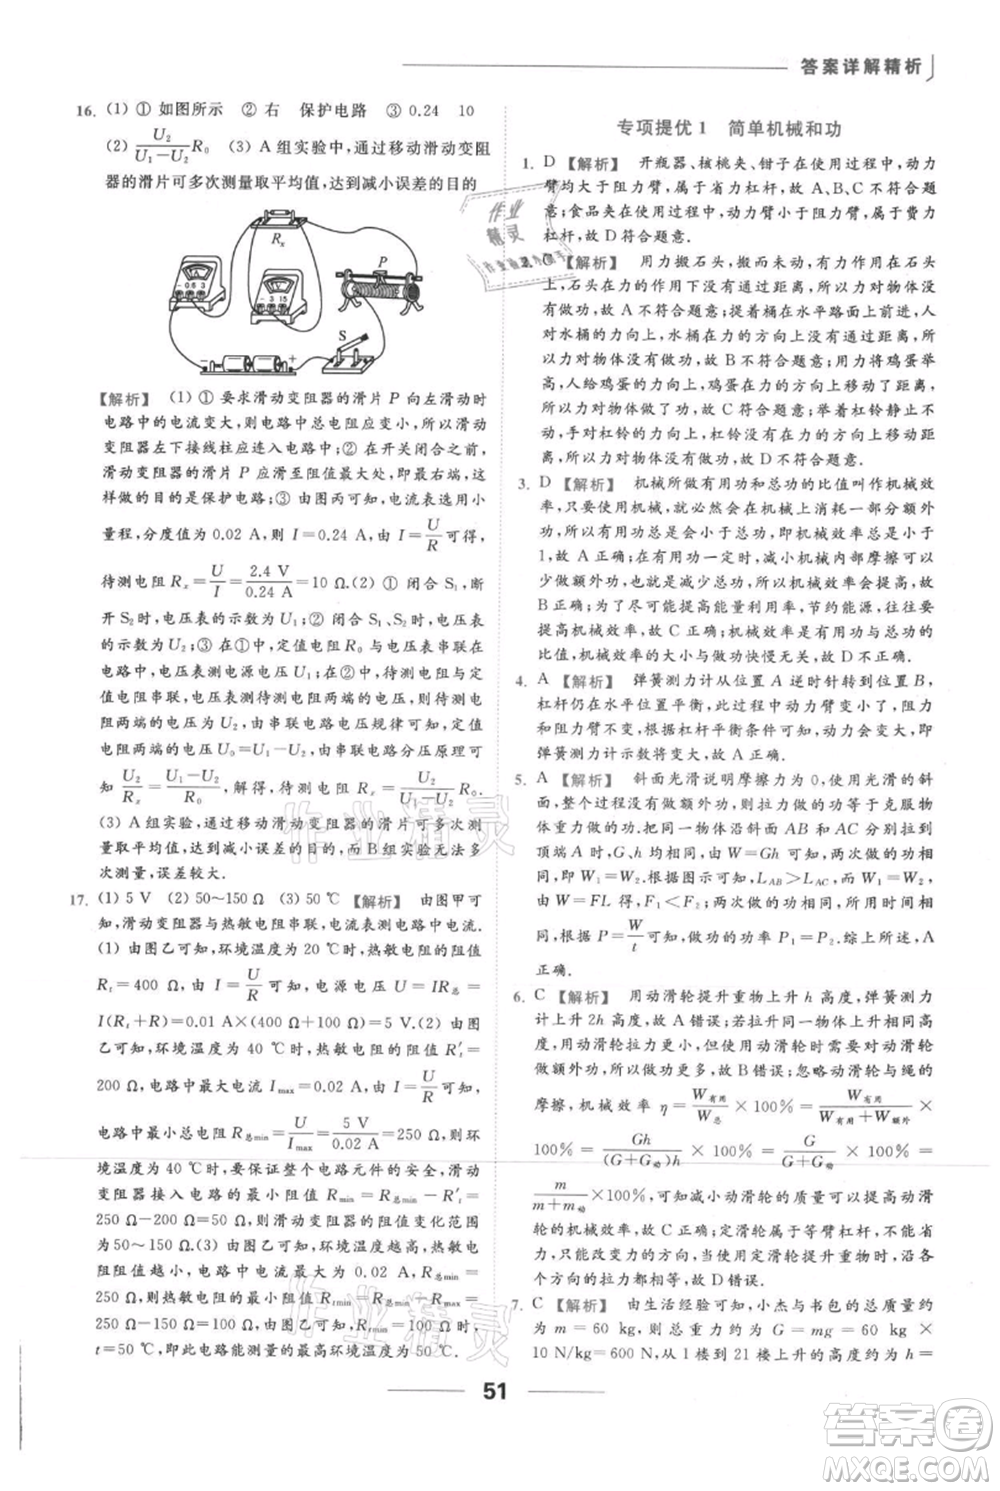 答案详解精析
16. (1) ① 如图所示 ② 右 保护电路 ③ 0.24 10
(2) U₂/(U₁−U₂) R₀ (3) A 组实验中,通过移动滑动变阻
器的滑片可多次测量取平均值,达到减小误差的目的
【解析】 (1) ① 要求滑动变阻器的滑片 P 向左滑动时
电路中的电流变大,则电路中总电阻应变小,故滑动变
阻器左下接线柱应连入电路中;② 在开关闭合之前,
滑动变阻器的滑片 P 应滑至阻值最大处,即最右端,
这样做的目的是保护电路;③ 由图丙可知,电流表选小
量程,分度值为 0.02 A,则 I=0.24 A,由 I=U/R可得,
待测电阻 Rₓ=U/I=2.4 V/0.24 A=10 Ω.(2) ① 闭合 S₁,断
开 S₂时,电压表的示数为 U₁;② 闭合 S₁、S₂时,电压表
的示数为 U₂;③ 由①②中,定值电阻 R₀与待测电阻串
联,电压表测电源电压,即电源电压为 U₁;待测电阻与
定值电阻串联,电压表测待测电阻两端的电压,即待测电
阻两端的电压为 U₂,由串联电路电压规律可知,定值
电阻两端的电压 U₀=U₁−U₂,由串联电路分压原理可
知 U₂/Rₓ=(U₁−U₂)/R₀,解得,待测电阻 Rₓ=U₂/(U₁−U₂) R₀.
(3) A 组实验,通过移动滑动变阻器的滑片可多次测量
取平均值,达到减小误差的目的,而 B 组实验无法多次
测量,误差较大.
17. (1) 5 V (2) 50~150 Ω (3) 50 ℃ 【解析】 由图甲可
知,滑动变阻器与热敏电阻串联,电流表测电路中电流.
(1) 由图乙可知,环境温度为 20 ℃时,热敏电阻的阻值
Rₜ=400 Ω,由 I=U/R可知,电源电压 U=IR总=
I(Rₜ+R)=0.01 A×(400 Ω+100 Ω)=5 V.(2) 由图
乙可知,环境温度为 40 ℃时,热敏电阻的阻值 R′ₜ=
200 Ω,电路中最大电流 Imax=0.02 A,由 I=U/R可知,
电路中最小总电阻 R总min=U/Imax=5 V/0.02 A=250 Ω,则环
境温度为 40 ℃时,要保证整个电路元件的安全,滑动
变阻器接入电路的最小阻值 Rmin=R总min−R′ₜ=
250 Ω−200 Ω=50 Ω,则滑动变阻器的阻值变化范围
为50~150 Ω.(3) 由图乙可知,环境温度越高,热敏电
阻阻值越小,电路中总电阻最小值 R总min=
250 Ω,则热敏电阻的最小阻值 Rtmin=R总min−R=
250 Ω−100 Ω=150 Ω,由图乙可知,Rtmin对应的温度
t=50 ℃,即此电路能测量的最高环境温度为 50 ℃.
专项提优 1 简单机械和功
1. D 【解析】 开瓶器、核桃夹、钳子在使用过程中,动力
臂均大于阻力臂,属于省力杠杆,故 A、B、C 不符合题
意;食品夹在使用过程中,动力臂小于阻力臂,属于费力
杠杆,故 D 符合题意.
2. C 【解析】 用力搬石头,石头未动,有力作用在石头
上,石头在力的作用下没有通过距离,所以力对石头没
有做功,故 A 不符合题意;提着桶在水平路面上前进,
人对水桶的力向上,水桶在力的方向上没有通过距离,
所以力对物体没有做功,故 B 不符合题意;将鸡蛋举
高,人给鸡蛋的力向上,鸡蛋在力的方向上通过了距离,
所以力对物体做了功,故 C 符合题意;举着杠铃静止不
动,手对杠铃的力向上,杠铃在力的方向上没有通过距
离,所以力对物体没有做功,故 D 不符合题意.
3. D 【解析】 机械所做有用功和总功的比值叫作机械效
率,只要使用机械,就必然会在机械上消耗一部分额外
功,所以有用功总是会小于总功,即机械效率总是小于
1,故 A 正确;在有用功一定时,减小机械内部摩擦可以
减少额外功,从而减少总功,所以机械效率会提高,故
B 正确;为了能提高能量利用率,节约能源,应尽可能
提高机械效率,故 C 正确;机械效率是有用功与总功的
比值,机械效率的大小与做功快慢无关,故 D 错误.
4. A 【解析】 弹簧测力计从位置 A 逆时针转到位置 B,
杠杆仍在水平位置平衡,此过程中动力臂变小了,阻力
和阻力臂不变,根据杠杆平衡条件可知,动力变大,即
弹簧测力计示数将变大,故 A 正确.
5. A 【解析】 斜面光滑说明摩擦力为 0,使用光滑的斜
面没有做额外功,则拉力做的功都是有用功,等于克服物
体重力做的功.把同一物体沿斜面 AB 和 AC分别拉到
顶端A 时所做的功,W=Gh 可知,两次做功相同,故
W₁=W₂;由于斜面的高度相同,且 LAB>LAC,所以,
由 W=FL 得知,F₁<F₂;两次做功相同,所用时间相
同,根据 P=W/t可知,做功的功率 P₁=P₂.综上所述,A
正确.
6. C 【解析】 用动滑轮提升重物上升 h 高度,弹簧测力
计上升 2h 高度,故 A 错误;若提升同一物体上升的高
度增加,用动滑轮拉力不变,有用功增加,使用动滑轮
所做功更多,故 B 错误;忽略动滑轮与绳的
摩擦,机械效率 η=W有用/W总×100%=W有用/(W有用+W额外)×
100%=Gh/((G+G动)h)×100%=G/(G+G动)×100%=
m/(m+m动)×100%,可知减小动滑轮的质量可以提高动滑
轮的机械效率,故 C 正确;定滑轮是等臂杠杆,不能省
力,只能改变力的方向,使用定滑轮提升重物时,沿任意
方向的拉力都相等,故 D 错误.
7. C 【解析】 由生活经验可知,小杰与书包的总质量约
为 m=60 kg,则总重力约为 G=mg=60 kg×
10 N/kg=600 N,从 1 楼到 21 楼上升的高度约为 h=
51
作业精灵
答案卷
MXQE.COM